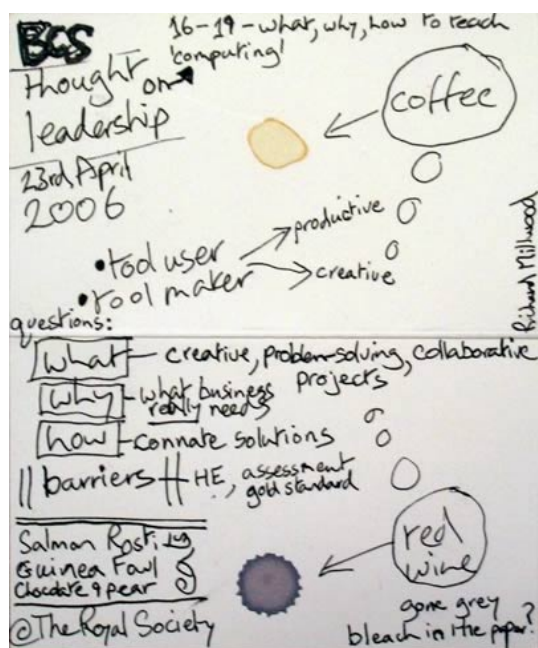 BCS
16-19 - what, why, how to teach
'computing'
thought on
leadership
23rd April
2006
coffee
productive
• tool user
creative
• tool maker
Richard Millwood
questions:
what - creative, problem-solving, collaborative
projects
why - what business
really needs
how - connate solutions
barriers HE, assessment
gold standard
Salmon Rosti
Guinea Fowl
Chocolate & pear
@The Royal Society
red
wine
gone grey
bleach in the paper?